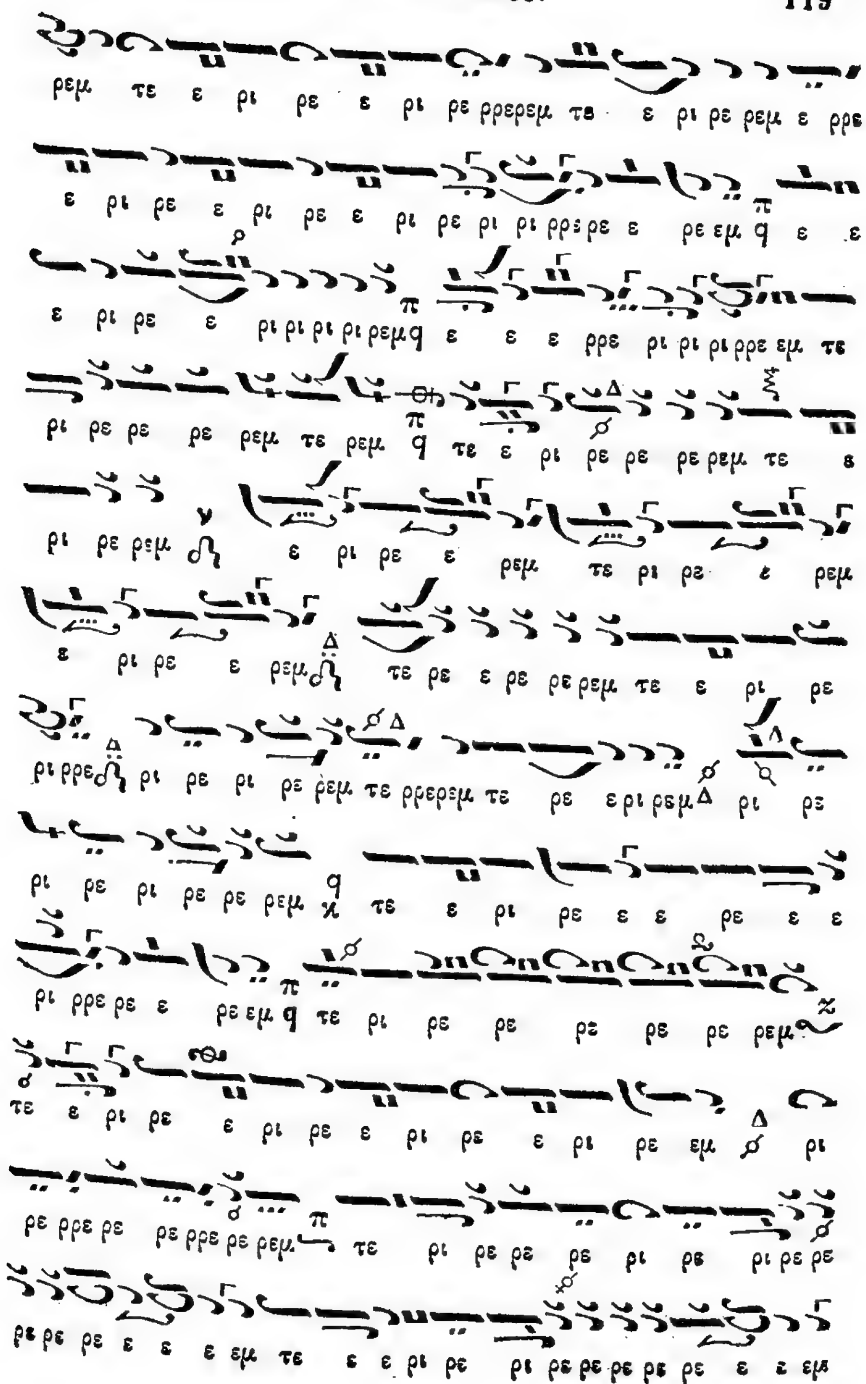 119
ρεμ τε ε ρι ρε ε ρι ρε ρρερεμ τε ε ρι ρε ρεμ ε ρρε
ε ρι ρε ε ρι ρε ε ρι ρε ρι ρι ρρε ρε ε ρε εμ π q ε ε
ε ρι ρε ε ρι ρι ρι ρι ρεμ π q ε ε ε ρρε ρι ρι ρι ρρε εμ τε
ρι ρε ρε ρε ρεμ τε ρεμ π q τε ε ρι ρε ρε ρε ρεμ τε ε
ρι ρε ρεμ ε ρι ρε ε ρεμ τε ρι ρε ε ρεμ
ε ρι ρε ε ρεμ Δ τε ρε ε ρε ρε ρεμ τε ε ρι ρε
ρι ρρε Δ ρι ρε ρι ρε ρεμ τε ρρερεμ τε ρε ε ρι ρεμ Δ ρι ρε
ρι ρε ρι ρε ρε ρεμ q κ τε ε ρι ρε ε ε ρε ε ε
ρι ρρε ρε ε ρε εμ π q τε ρι ρε ρε ρε ρε ρε ρεμ
τε ε ρι ρε ε ρι ρε ε ρι ρε ε ρι ρε εμ Δ ρι
ρε ρρε ρε ρε ρρε ρε ρεμ π τε ρι ρε ρε ρε ρι ρε ρι ρε ρε
ρε ρε ρε ε ε ε εμ τε ε ε ρι ρε ρι ρε ρε ρε ρε ρε ε ε εμ